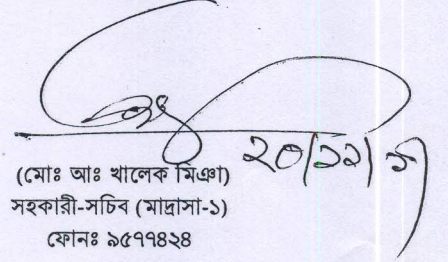 ২০/১২/১১
(মোঃ আঃ খালেক মিঞা)
সহকারী-সচিব (মাদ্রাসা-১)
ফোনঃ ৯৫৭৭৪২৪